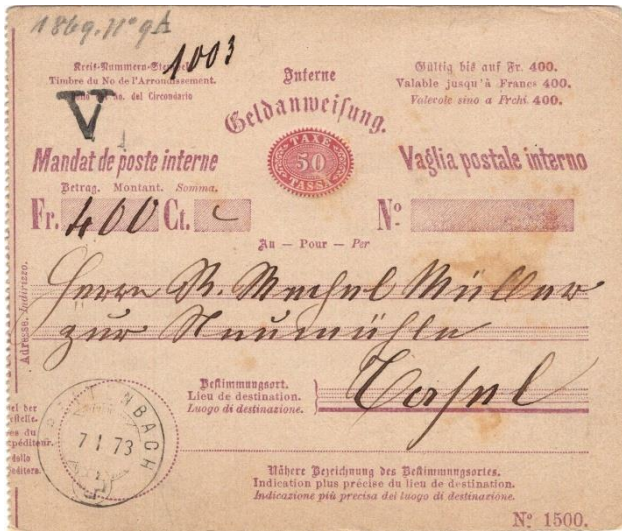 1869.
1003
Kreis-Nummern-Stempel
Timbre du No de l'Arrondissement.
No. del Circondario
V
Interne
Geldanweisung.
TAXE
50
TASS.
Gültig bis auf Fr. 400.
Valable jusqu'à Francs 400.
Valevole sino a Frchi. 400.
Mandat de poste interne
Vaglia postale interno
Betrag. Montant. Somma.
Fr. 400 Ct.
Nº
An — Pour — Per
Adresse. Indirizzo.
Herrn Müller
zur Neumühle
Bestimmungsort.
Lieu de destination.
Luogo di destinazione.
Basel
NBACH
7 I 73
Nähere Bezeichnung des Bestimmungsortes.
Indication plus précise du lieu de destination.
Indicazione più precisa del luogo di destinazione.
Nº 1500.